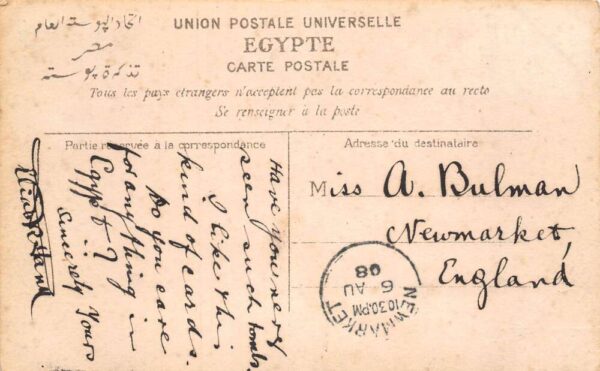 UNION POSTALE UNIVERSELLE
EGYPTE
CARTE POSTALE
اتحاد البوسته العام
مصر
تذكرة بوسته
Tous les pays étrangers n'acceptent pas la correspondance au recto
Se renseigner à la poste
Partie réservée à la correspondance
Adresse du destinataire
Have you
seen such
I like this
kind of cards.
Do you care
for anything in
Egypt?
Sincerely Yours
Miss A. Bulman
Newmarket,
England
NEWMARKET
10.30.PM
6 AU
08